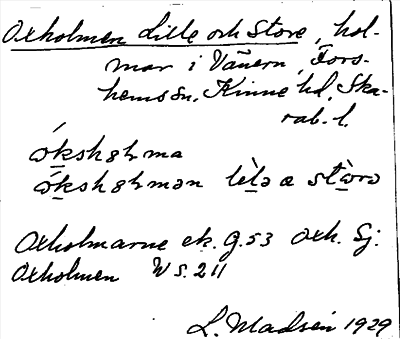 Oxholmen Lille och Store, hol-
mar i Vänern, Fors-
hems sn. Kinne hd, Ska-
rab. l.
ókshɘɫma
ókshɘɫmən lèlə a stòrə
Oxholmarne ek. g. 53 Oxh. Sj:
Oxholmen W S. 211
L. Madsén 1929